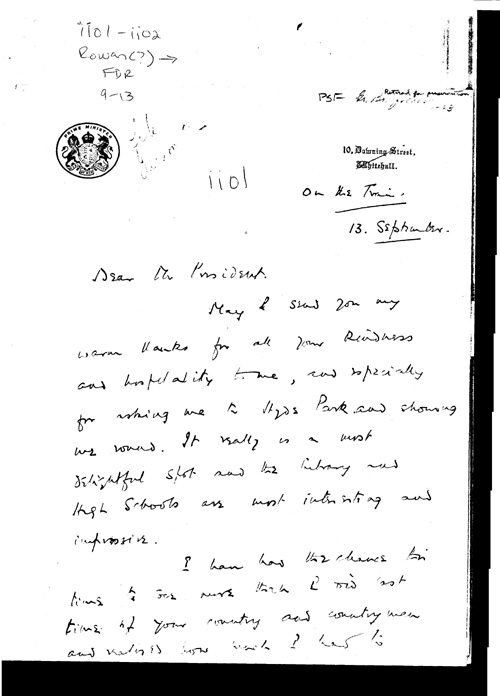 1101 - 1102
Rowan(?) →
FDR
9-13
PSF
Retired for preservation
PRIME MINISTER
10, Downing Street,
Whitehall.
1101
On the Train.
13. September.
Dear Mr President.
May I send you my
warm thanks for all your kindness
and hospitality to me, and especially
for asking me to Hyde Park and showing
me round. It really is a most
delightful spot and the Library and
High Schools are most interesting and
impressive.
I have had the chance this
time to see more than I did last
time of your country and countrymen
and realised how much I had to